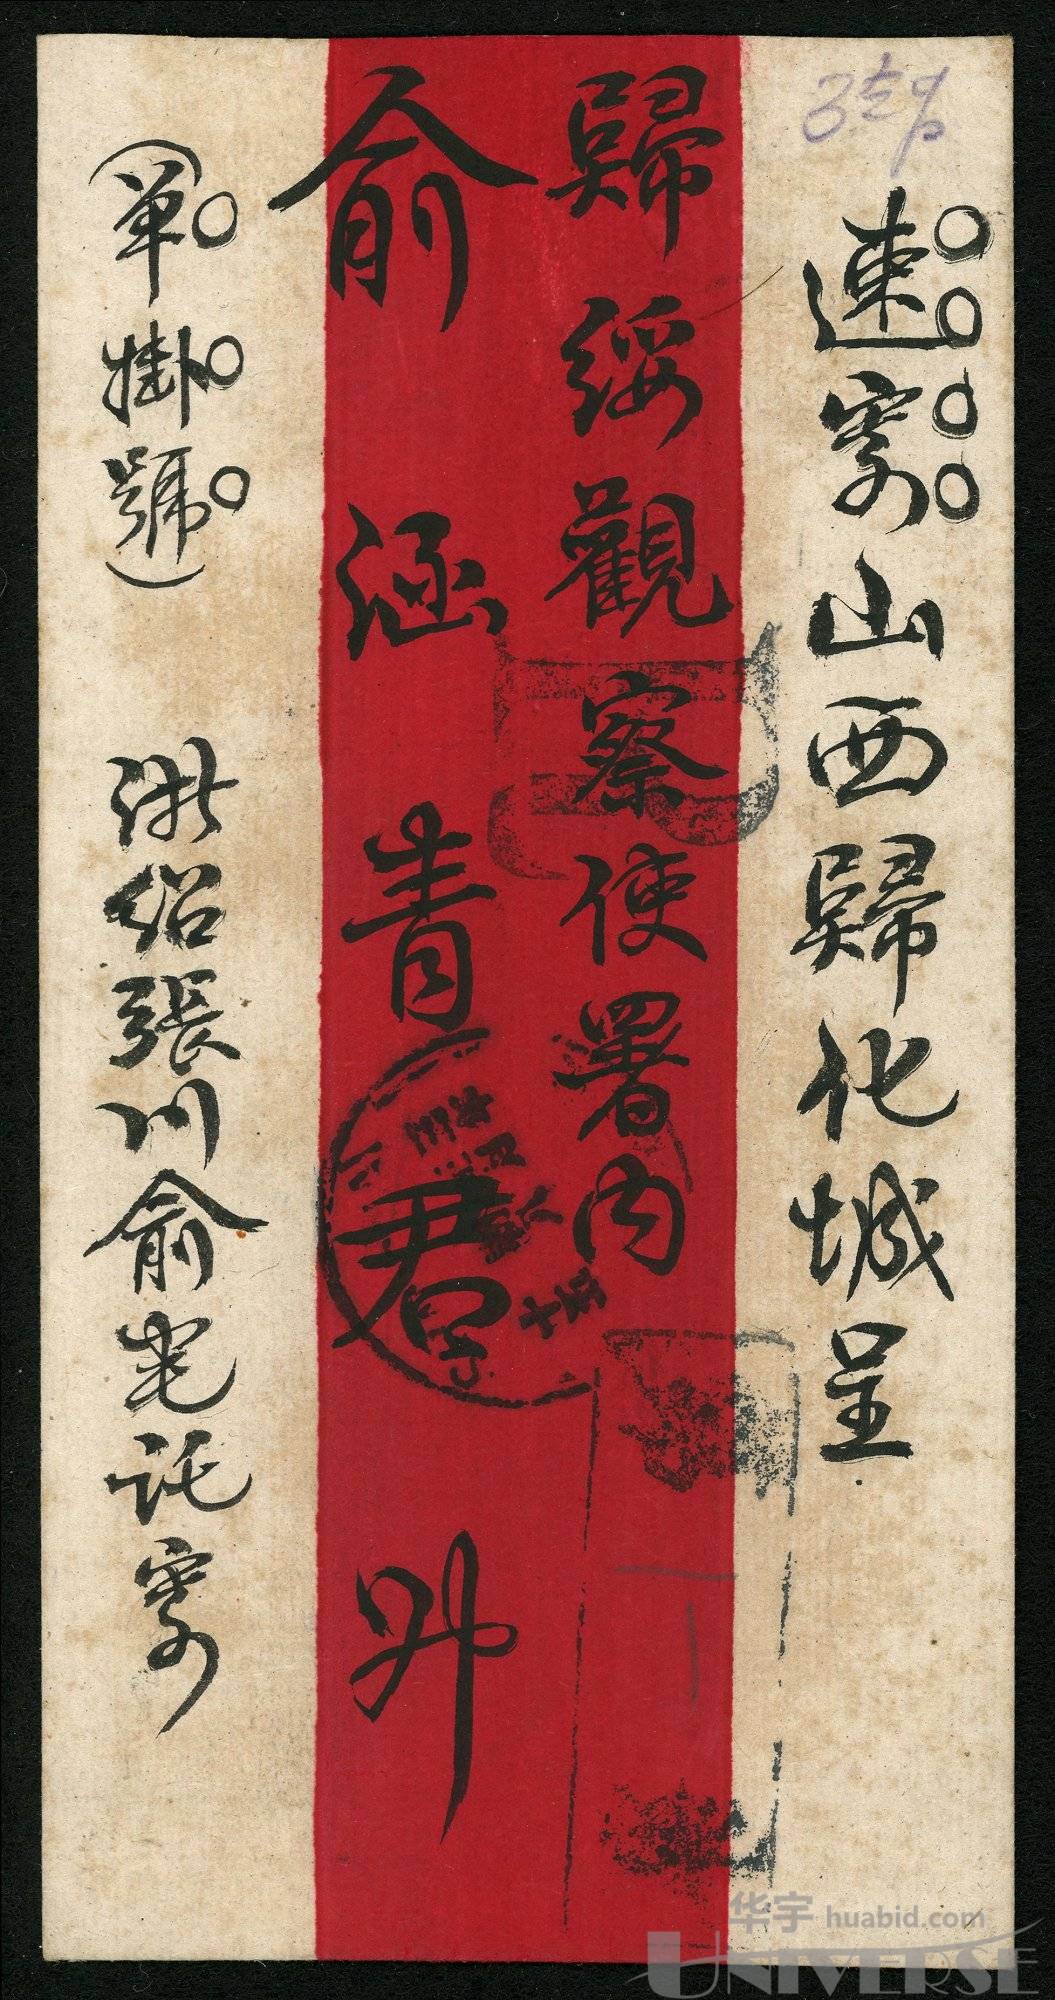 速寄山西歸化城呈
歸綏觀察使署內
俞涵青君升
(單掛號)
浙紹張川俞宅託寄
华宇 huabid.com
UNIVERSE